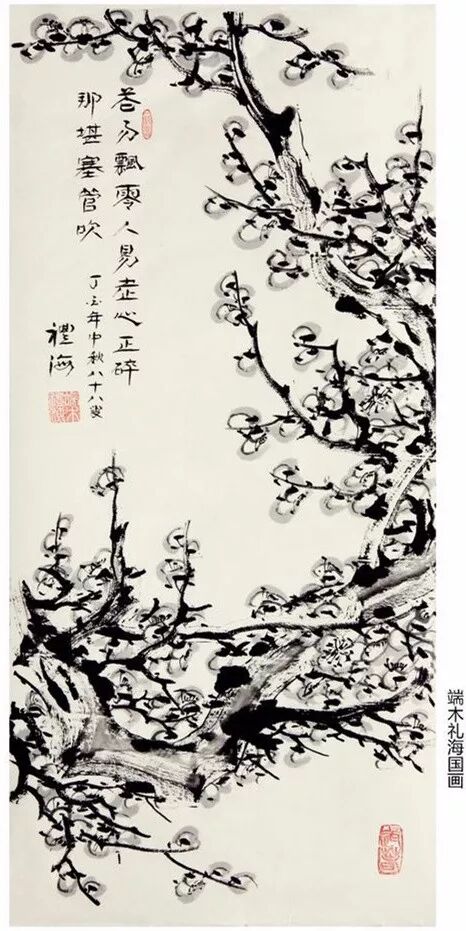 花易飄零人易老心正碎
那堪塞管吹
丁亥年中秋八十八叟
禮海
端木礼海国画